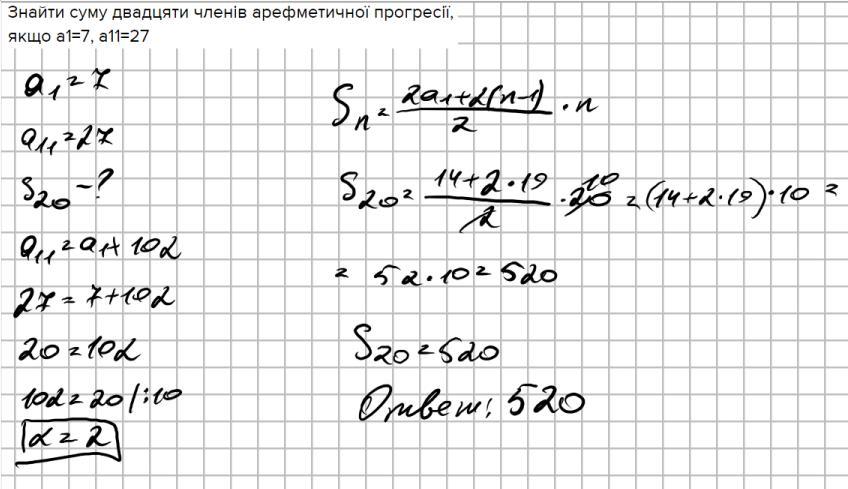 Знайти суму двадцяти членів арефметичної прогресії,
якщо a1=7, a11=27
a₁ = 7
a₁₁ = 27
S₂₀ - ?
a₁₁ = a₁ + 10d
27 = 7 + 10d
20 = 10d
10d = 20 / :10
d = 2
Sₙ = (2a₁ + d(n-1))/2 · n
S₂₀ = (14 + 2 · 19)/2 · 20 10 = (14 + 2 · 19) · 10 =
= 52 · 10 = 520
S₂₀ = 520
Ответ: 520